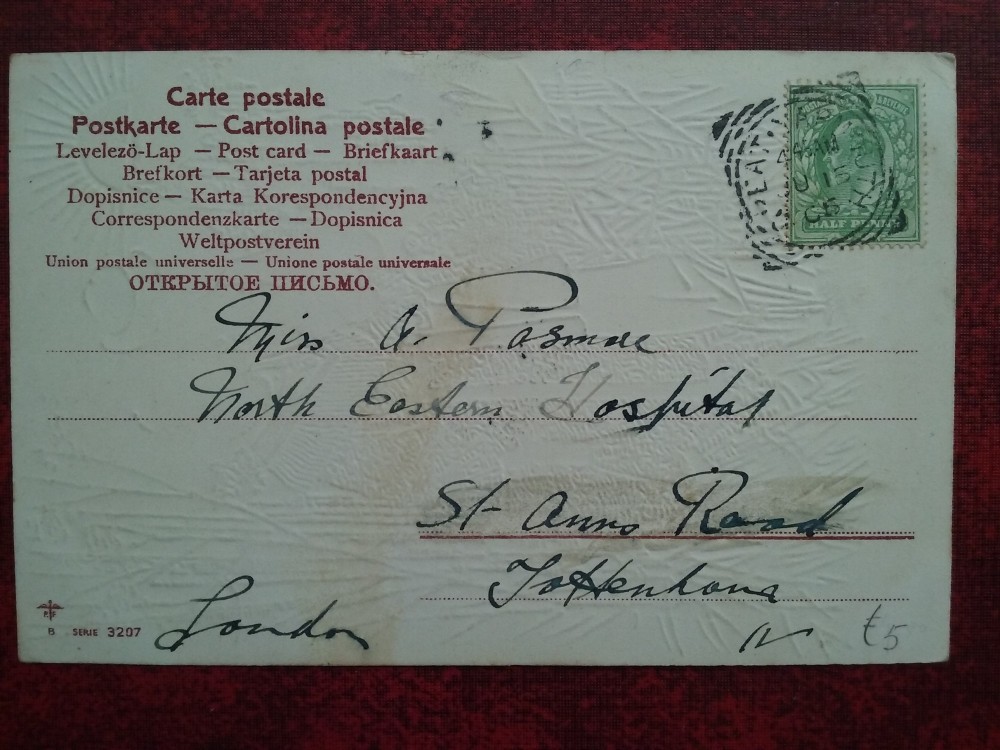 Carte postale
Postkarte — Cartolina postale
Levelező-Lap — Post card — Briefkaart
Brefkort — Tarjeta postal
Dopisnice — Karta Korespondencyjna
Correspondenzkarte — Dopisnica
Weltpostverein
Union postale universelle — Unione postale universale
ОТКРЫТОЕ ПИСЬМО.
HALF PENNY
Miss A. Pasmore
North Eastern Hospital
St Anns Road
Tottenham
London
N
£5
B SERIE 3207